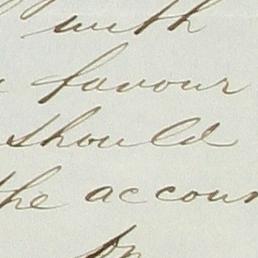 with
favour
should
the accoun